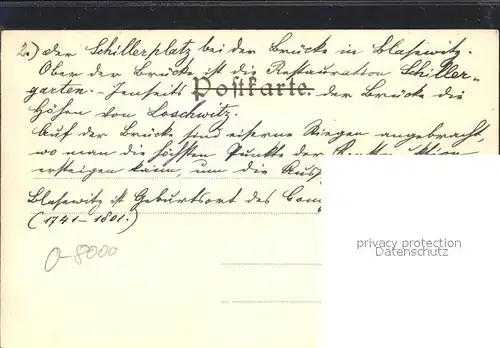 2.) Der Schillerplatz bei der Brücke in Blasewitz.
Ober der Brücke ist die Restauration Schiller-
garten. - Jenseits der Brücke die
Postkarte.
Höhen von Loschwitz.
Auf der Brücke sind eiserne Stiegen angebracht,
wo man die höchsten Punkte der
ersteigen kann, um die
Blasewitz ist Geburtsort des
(1741-1801.)
0-8000
privacy protection
Datenschutz